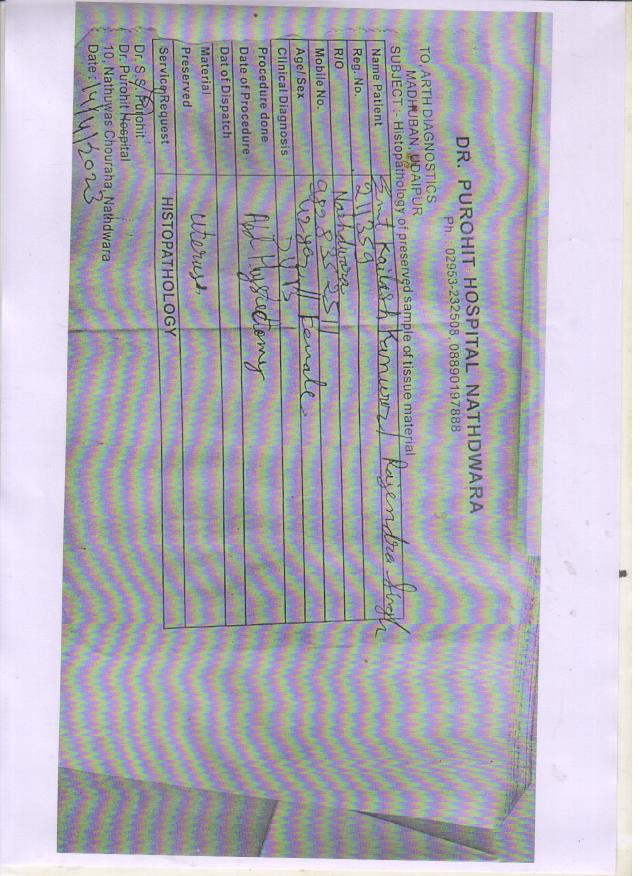 DR. PUROHIT HOSPITAL NATHDWARA
Ph. 02953-232508, 08890197888
TO, ARTH DIAGNOSTICS
MADHUBAN, UDAIPUR
SUBJECT :- Histopathology of preserved sample of tissue material
Name Patient Smt Kailash Kunwar / Rajendra Singh
Reg. No.
R/O Nathdwara
Mobile No.
Age/ Sex Female
Clinical Diagnosis DUB
Procedure done Abd Hysterectomy
Date of Procedure
Dat of Dispatch
Material Uterus
Preserved
Service Request HISTOPATHOLOGY
Dr. S.S. Purohit
Dr. Purohit Hospital
10, Nathuwas Chouraha, Nathdwara
Date : 14/4/2023